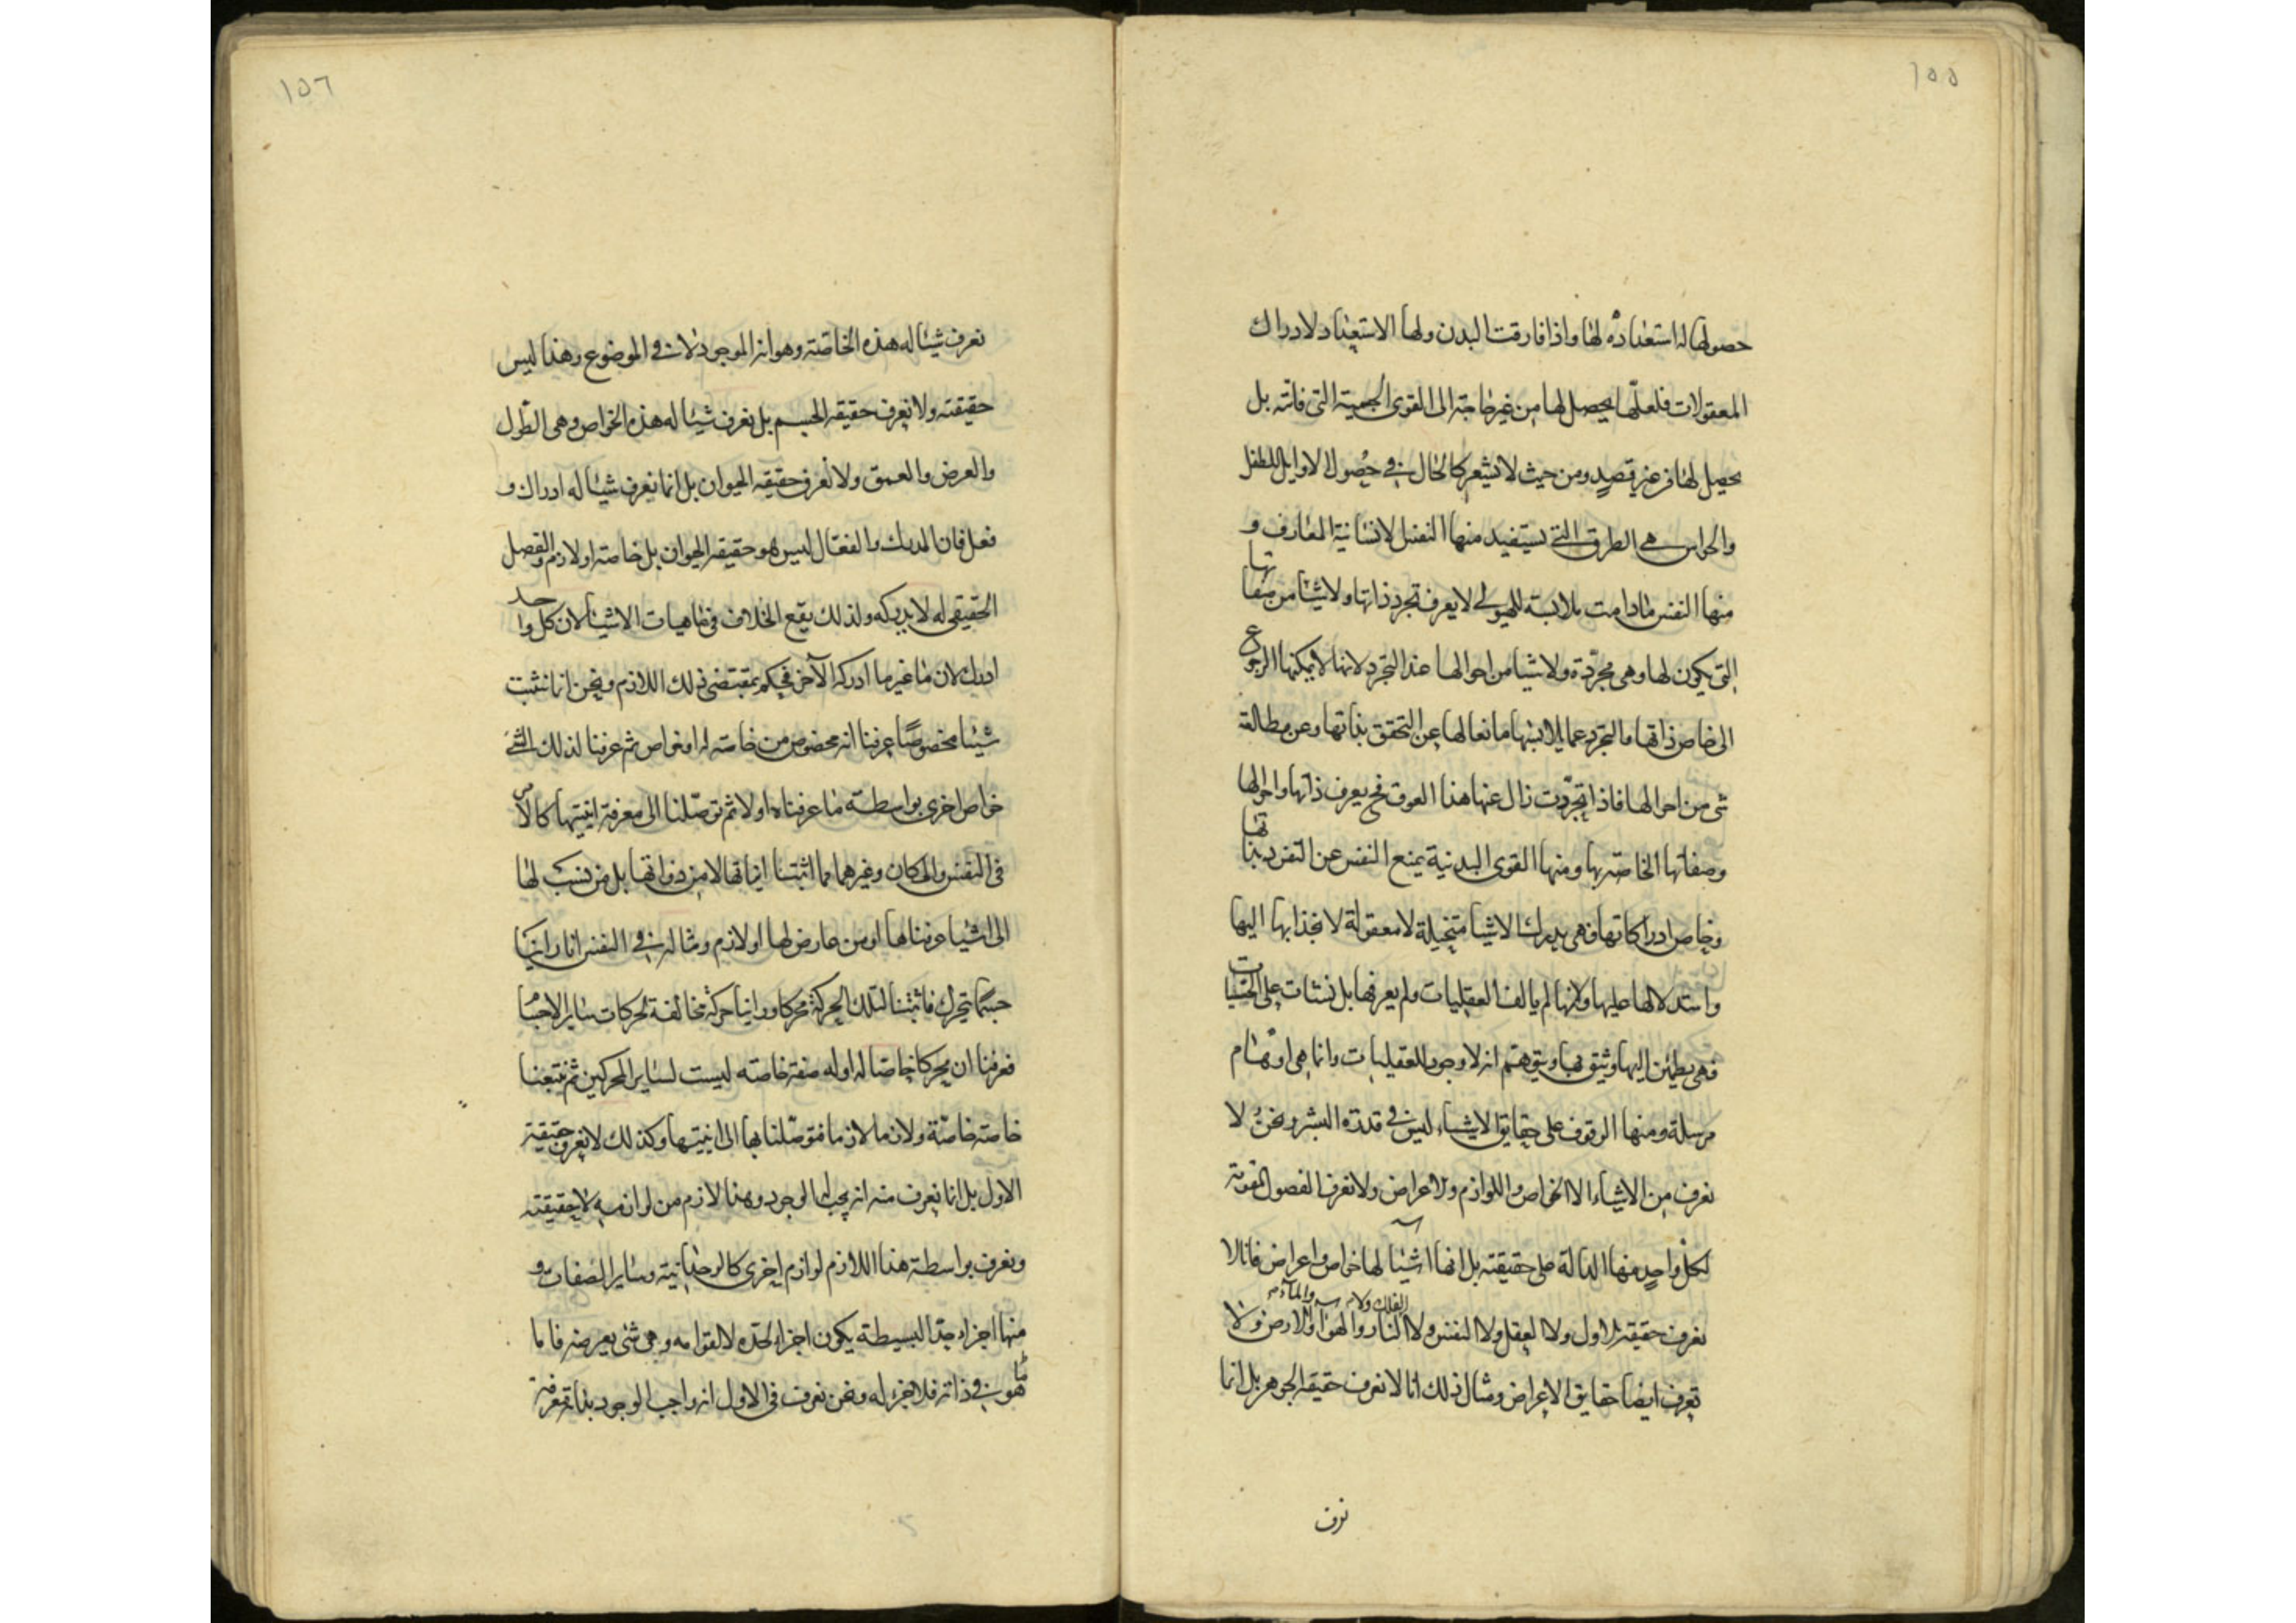 ١٥٥
حصولها له استعداده لها واذا فارقت البدن ولها الاستعداد لادراك
المعقولات فلعلّها يحصل لها من غير حاجة الى القوى الجسمية التى فاتته بل
يحصل لها من غير قصدٍ ومن حيث لا نشعر كالحال في حصول الاوايل للطفل
والحواس هى الطرق التى تستفيد منها النفس الانسانية المعارف و
منها النفس مادامت ملابسة للهيولى لا يعرف تجرد ذاتها ولا شيئا من صفاتها
التى يكون لها وهى مجرّدة ولا شيئا من احوالها عند التجرد لانها لا يمكنها الرجوع
الى خاص ذاتها مالتجرد عما يلابسها مانعا لها عن التحقق بذاتها وعن مطالعة
شى من احوالها فاذا تجرّدت زال عنها هذا العوق فح يعرف ذاتها واحوالها
وصفاتها الخاصة بها ومنها القوى البدنية يمنع النفس عن التفرد بذاتها
وخاص ادراكاتها فهى يدرك الاشيا متخيلة لا معقولة لانجذابها اليها
واستدلالها عليها ولانها لم يالف العقليات ولم يعرفها بل نشات على الحسّيات
فهى يطمئن اليها ويثق بها ويتوهم انه لا وجود للعقليات وانما هى اوهام
مرسلة ومنها الوقوف على حقايق الاشياء ليس في قدرة البشر ونحن لا
نعرف من الاشياء الا الخواص واللوازم والاعراض ولا نعرف الفصول المقومة
لكل واحدٍ منها الدالة على حقيقته بل انها اشيا لها خواص واعراض فانا لا
نعرف حقيقة الاول ولا العقل ولا النفس ولا الفلك ولا النار والهوا والمآء والارض ولا
نعرف ايضا حقايق الاعراض ومثال ذلك انا لا نعرف حقيقة الجوهر بل انما
نعرف
١٥٦
نعرف شيئا له هذه الخاصة وهو انه الموجود لا في الموضوع وهذا ليس
حقيقته ولا نعرف حقيقة الجسم بل نعرف شيئا له هذه الخواص وهى الطّول
والعرض والعمق ولا نعرف حقيقة الحيوان بل انما نعرف شيئا له ادراك و
فعل فان المدرك والفعّال ليس هو حقيقة الحيوان بل خاصة او لازم والفصل
الحقيقى له لا يدركه ولذلك يقع الخلاف فى ماهيات الاشيا لان كل واحد
ادرك لازما غير ما ادركه الآخر فحكم بمقتضى ذلك اللازم ونحن انما نثبت
شيئا مخصوصًا عرفنا انه مخصوص من خاصة له او خواص ثم عرفنا لذلك الشئ
خواص اخرى بواسطة ما عرفناه اولا ثم توصّلنا الى معرفة انيتها كالامر
فى النفس والمكان وغيرهما مما اثبتنا انياتها لا من ذواتها بل من نسب لها
الى اشيا عرفناها او من عارض لها او لازم ومثاله في النفس انا راينا
جسمًا يتحرك فاثبتنا لتلك الحركة محركا وراينا حركة مخالفة لحركات ساير الاجسا
فعرفنا ان محركا خاصا له او له صفة خاصة ليست لساير المحركين ثم تتبعنا
خاصة خاصّة ولازما لازما فتوصّلنا بها الى انيتها وكذلك لا نعرف حقيقة
الاول بل انما نعرف منه انه يجب له الوجود وهذا لازم من لوازمه لا حقيقته
ونعرف بواسطة هذا اللازم لوازم اخرى كالوحدانية وساير الصفات و
منها اجزاء حد البسيطة يكون اجزاء لحده لا لقوامه وهى شئ يعرضه فاما
هو في ذاته فلا جزء له ونحن نعرف فى الاول انه واجب الوجود بذاته معرفة